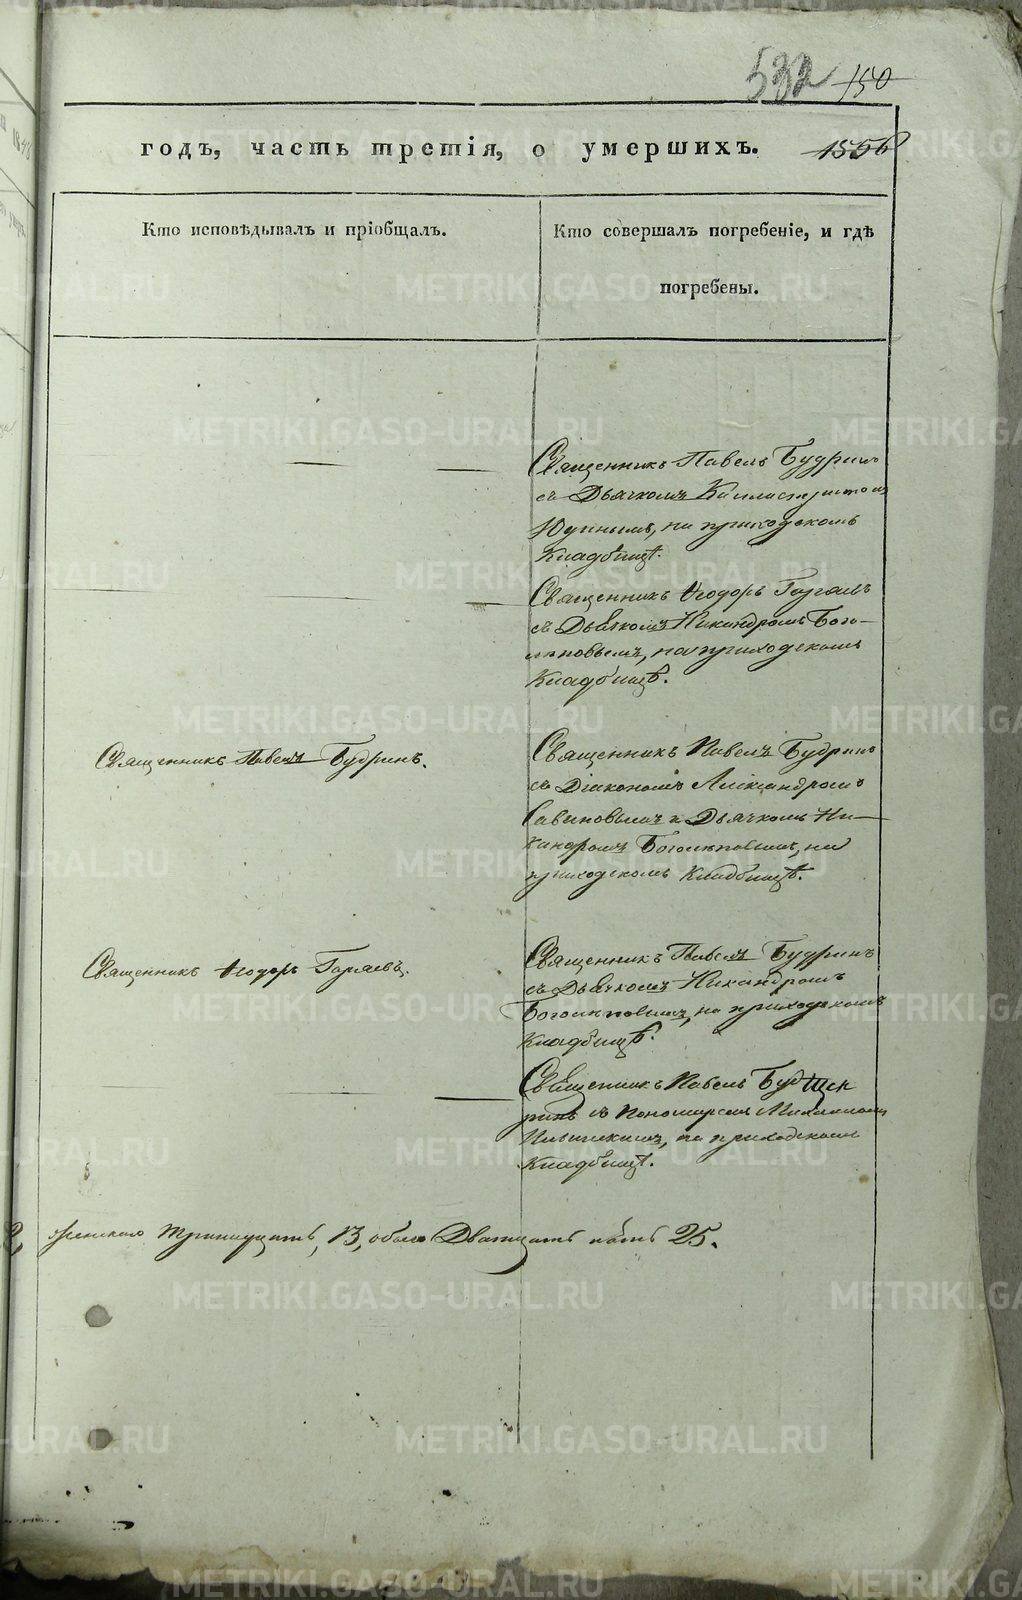 532 150
годъ, часть третія, о умершихъ. 1556
Кто исповѣдывалъ и пріобщалъ.
Кто совершалъ погребеніе, и гдѣ
погребены.
Священникъ Павелъ Будринъ
съ Дьячкомъ Каллистратомъ
на приходскомъ
Кладбищѣ.
Священникъ Ѳеодоръ
съ Дьячкомъ Никандромъ Бого-
лѣповымъ, на приходскомъ
Кладбищѣ.
Священникъ Павелъ Будринъ.
Священникъ Павелъ Будринъ
съ Діакономъ Александромъ
Савиновымъ и Дьячкомъ Ни-
кандромъ Боголѣповымъ, на
приходскомъ Кладбищѣ.
Священникъ Ѳеодоръ
Священникъ Павелъ Будринъ
съ Дьячкомъ Никандромъ
Боголѣповымъ, на приходскомъ
Кладбищѣ.
Священникъ Павелъ Буд
ринъ съ Пономаремъ
на приходскомъ
Кладбищѣ.
женскаго тринадцать, 13, обоего Двадцать пять 25.
METRIKI.GASO-URAL.RU